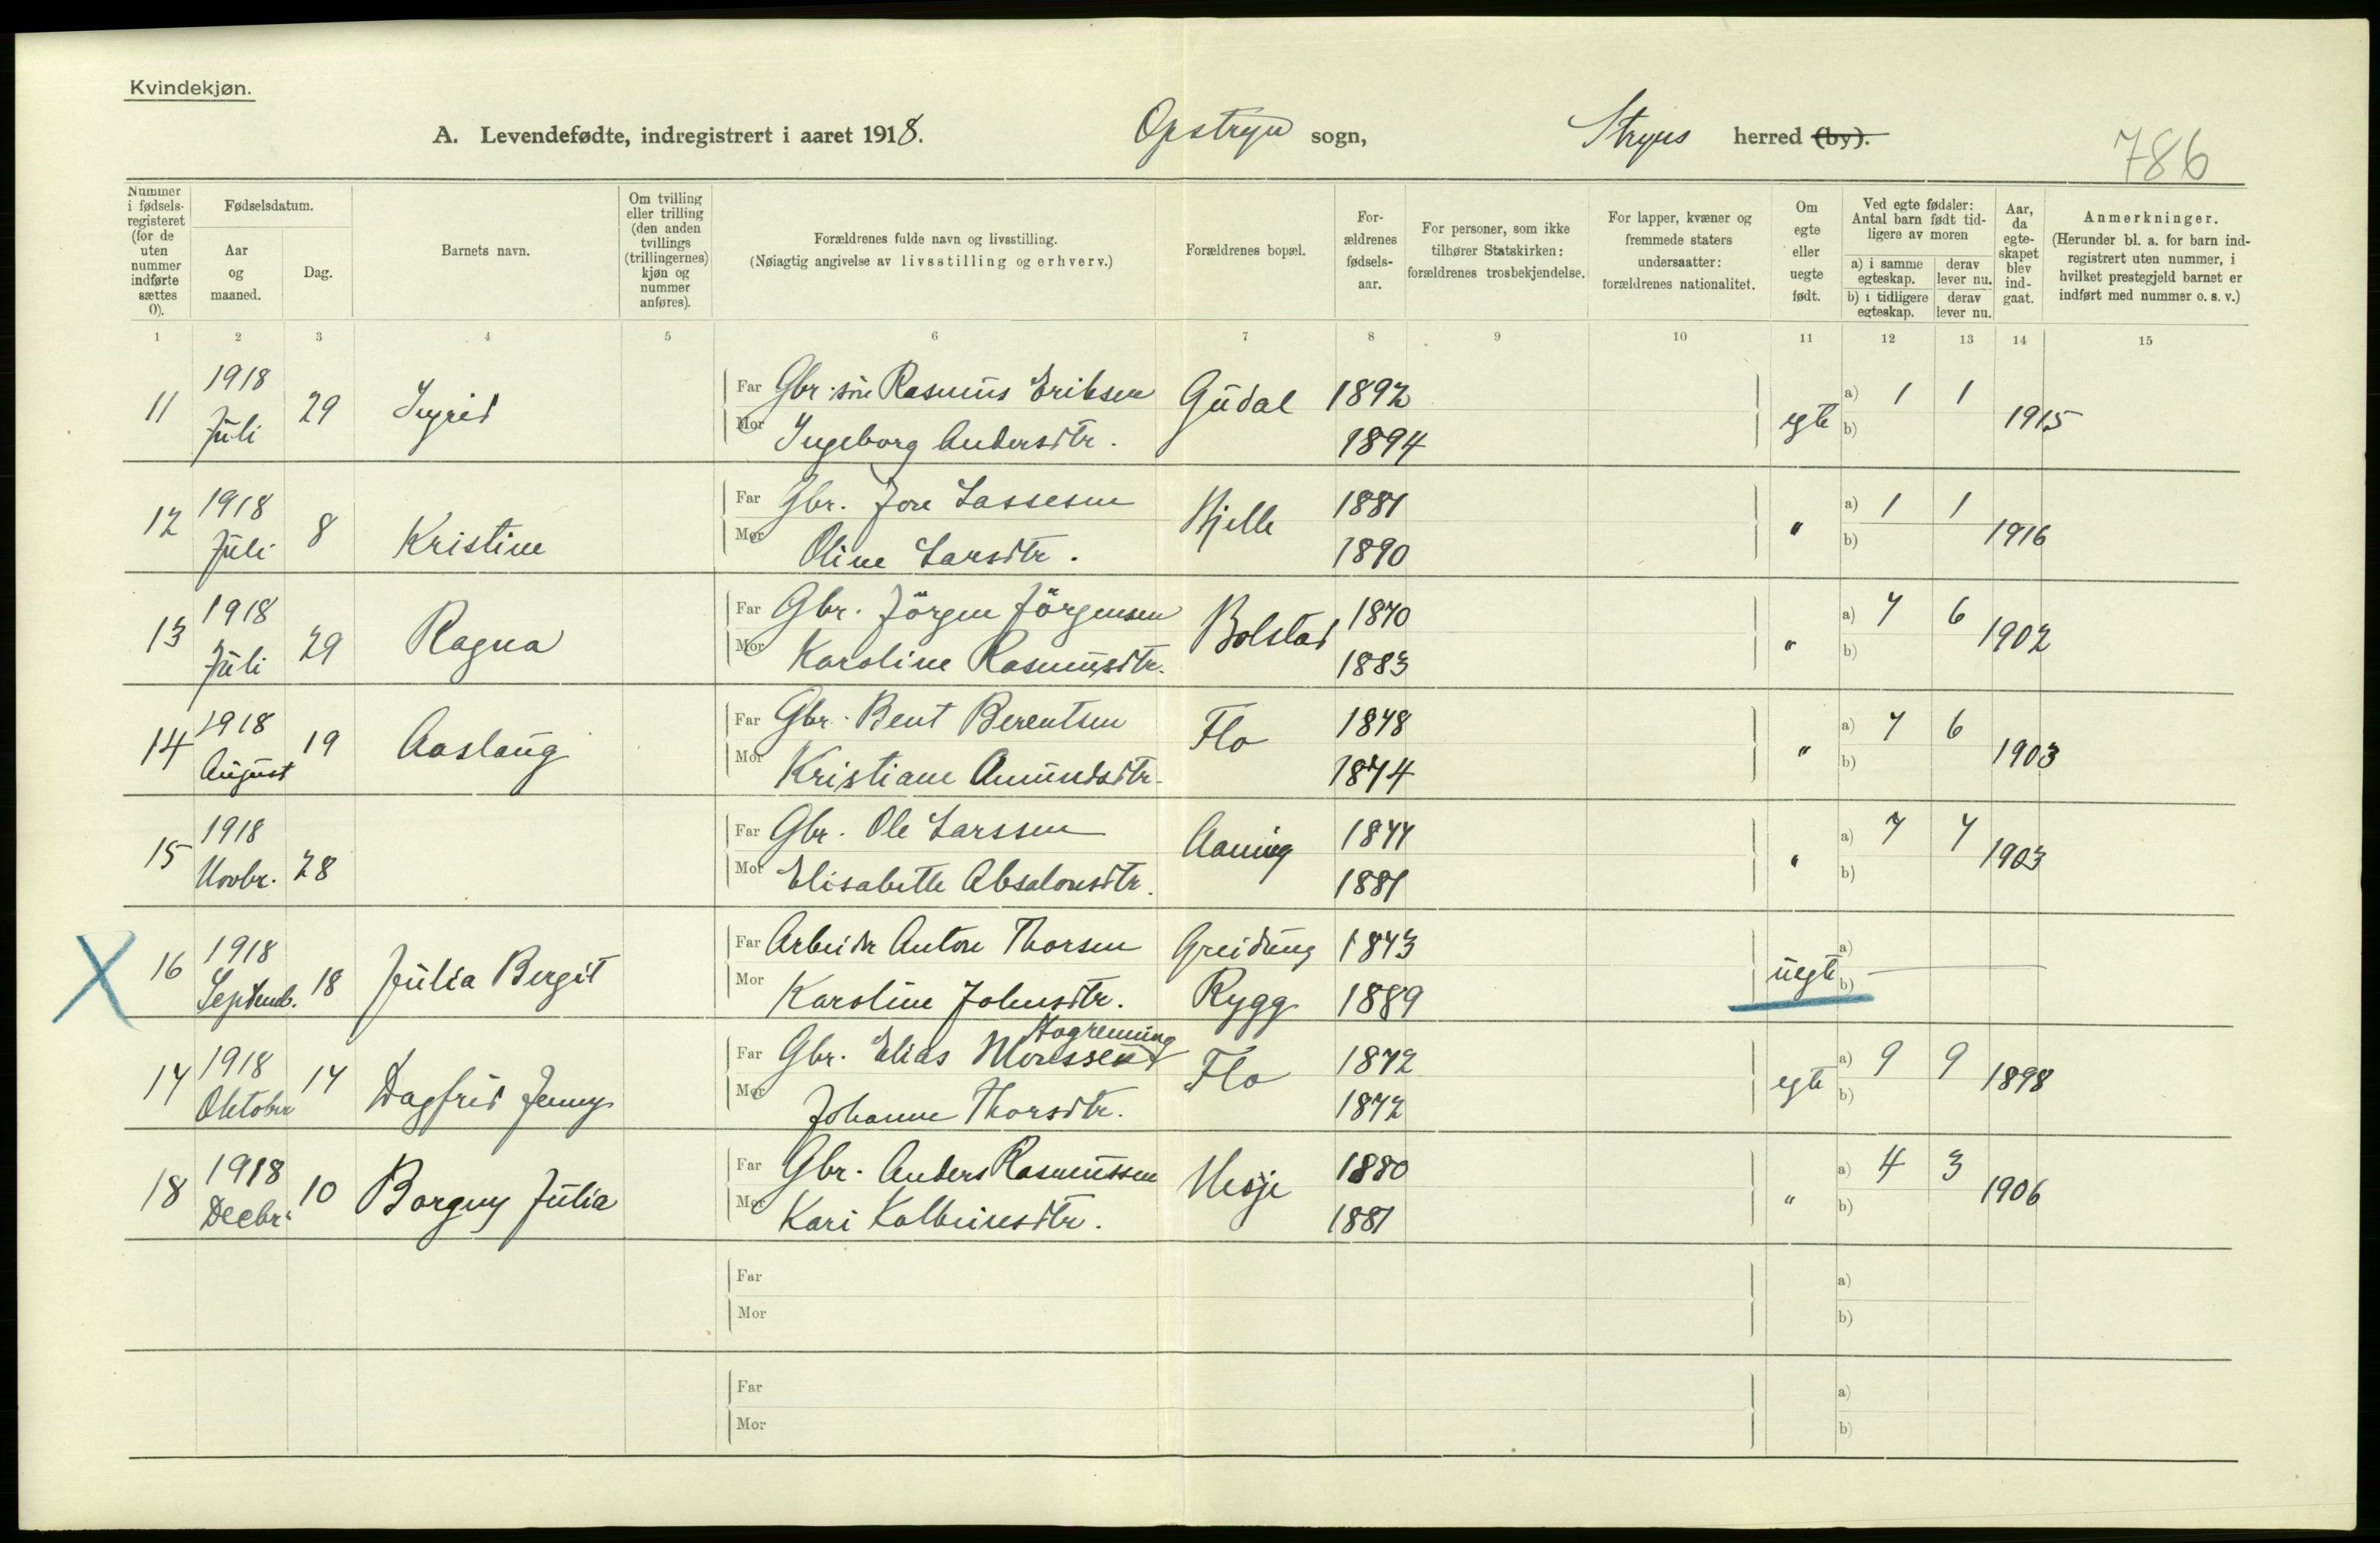 Kvindekjøn.
A. Levendefødte, indregistrert i aaret 1918. Opstryn sogn, Stryns herred (by).
786
Nummer i fødsels-registeret (for de uten nummer indførte sættes 0).
Fødselsdatum.
Aar og maaned.
Dag.
Barnets navn.
Om tvilling eller trilling (den anden tvillings (trillingernes) kjøn og nummer anføres).
Forældrenes fulde navn og livsstilling.
(Nøiagtig angivelse av livsstilling og erhverv.)
Forældrenes bopæl.
For-ældrenes fødsels-aar.
For personer, som ikke tilhører Statskirken: forældrenes trosbekjendelse.
For lapper, kvæner og fremmede staters undersaatter: forældrenes nationalitet.
Om egte eller uegte født.
Ved egte fødsler: Antal barn født tid-ligere av moren
a) i samme egteskap. derav lever nu.
b) i tidligere egteskap. derav lever nu.
Aar, da egte-skapet blev ind-gaat.
Anmerkninger.
(Herunder bl. a. for barn ind-registrert uten nummer, i hvilket prestegjeld barnet er indført med nummer o. s. v.)
1 2 3 4 5 6 7 8 9 10 11 12 13 14 15
11 1918 Juli 29 Ingrid Far Gbr. søn Rasmus Eriksen Gudal 1892 egte a) 1 1 1915
Mor Ingeborg Andersdtr. 1894 b)
12 1918 Juli 8 Kristine Far Gbr. Jon Lassesen Hjelle 1881 " a) 1 1 1916
Mor Oline Larsdtr. 1890 b)
13 1918 Juli 29 Ragna Far Gbr. Jörgen Jörgensen Bolstad 1870 " a) 7 6 1902
Mor Karoline Rasmusdtr. 1883 b)
14 1918 August 19 Aaslaug Far Gbr. Bent Berentsen Flo 1878 " a) 7 6 1903
Mor Kristiane Amundsdtr. 1874 b)
15 1918 Novbr. 28 Far Gbr. Ole Larssen Aaning 1877 " a) 7 7 1903
Mor Elisabette Absalonsdtr. 1881 b)
X 16 1918 Septemb. 18 Julia Bergit Far Arbeider Anton Thorsen Greidung 1873 uegte a)
Mor Karoline Johnsdtr. Rygg 1889 b)
17 1918 Oktober 17 Dagfrid Jenny Far Gbr. Elias Monssen Hogrenning Flo 1872 egte a) 9 9 1898
Mor Johanne Thorsdtr. 1872 b)
18 1918 Decbr. 10 Borgny Julia Far Gbr. Anders Rasmussen Mesje 1880 " a) 4 3 1906
Mor Kari Kolbeinsdtr. 1881 b)
Far a)
Mor b)
Far a)
Mor b)